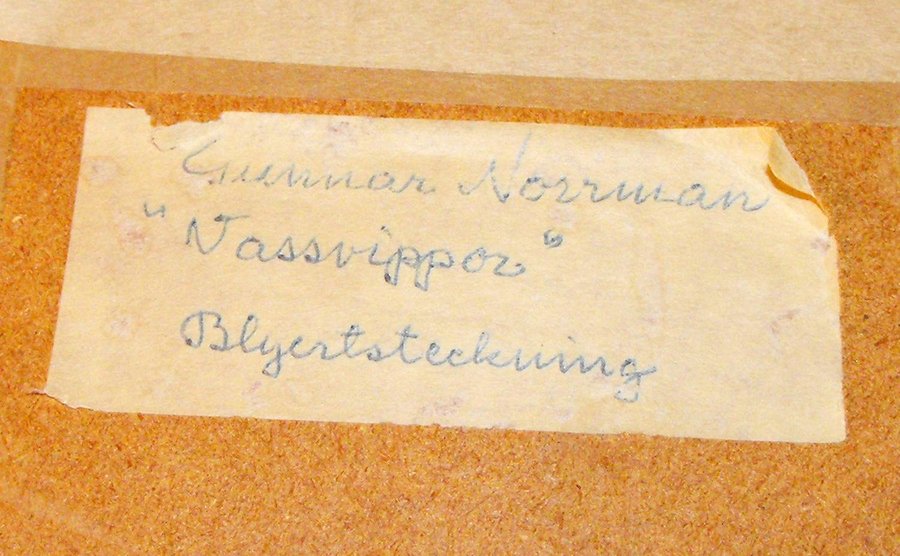 Gunnar Norrman
"Vassvippor"
Blyertsteckning